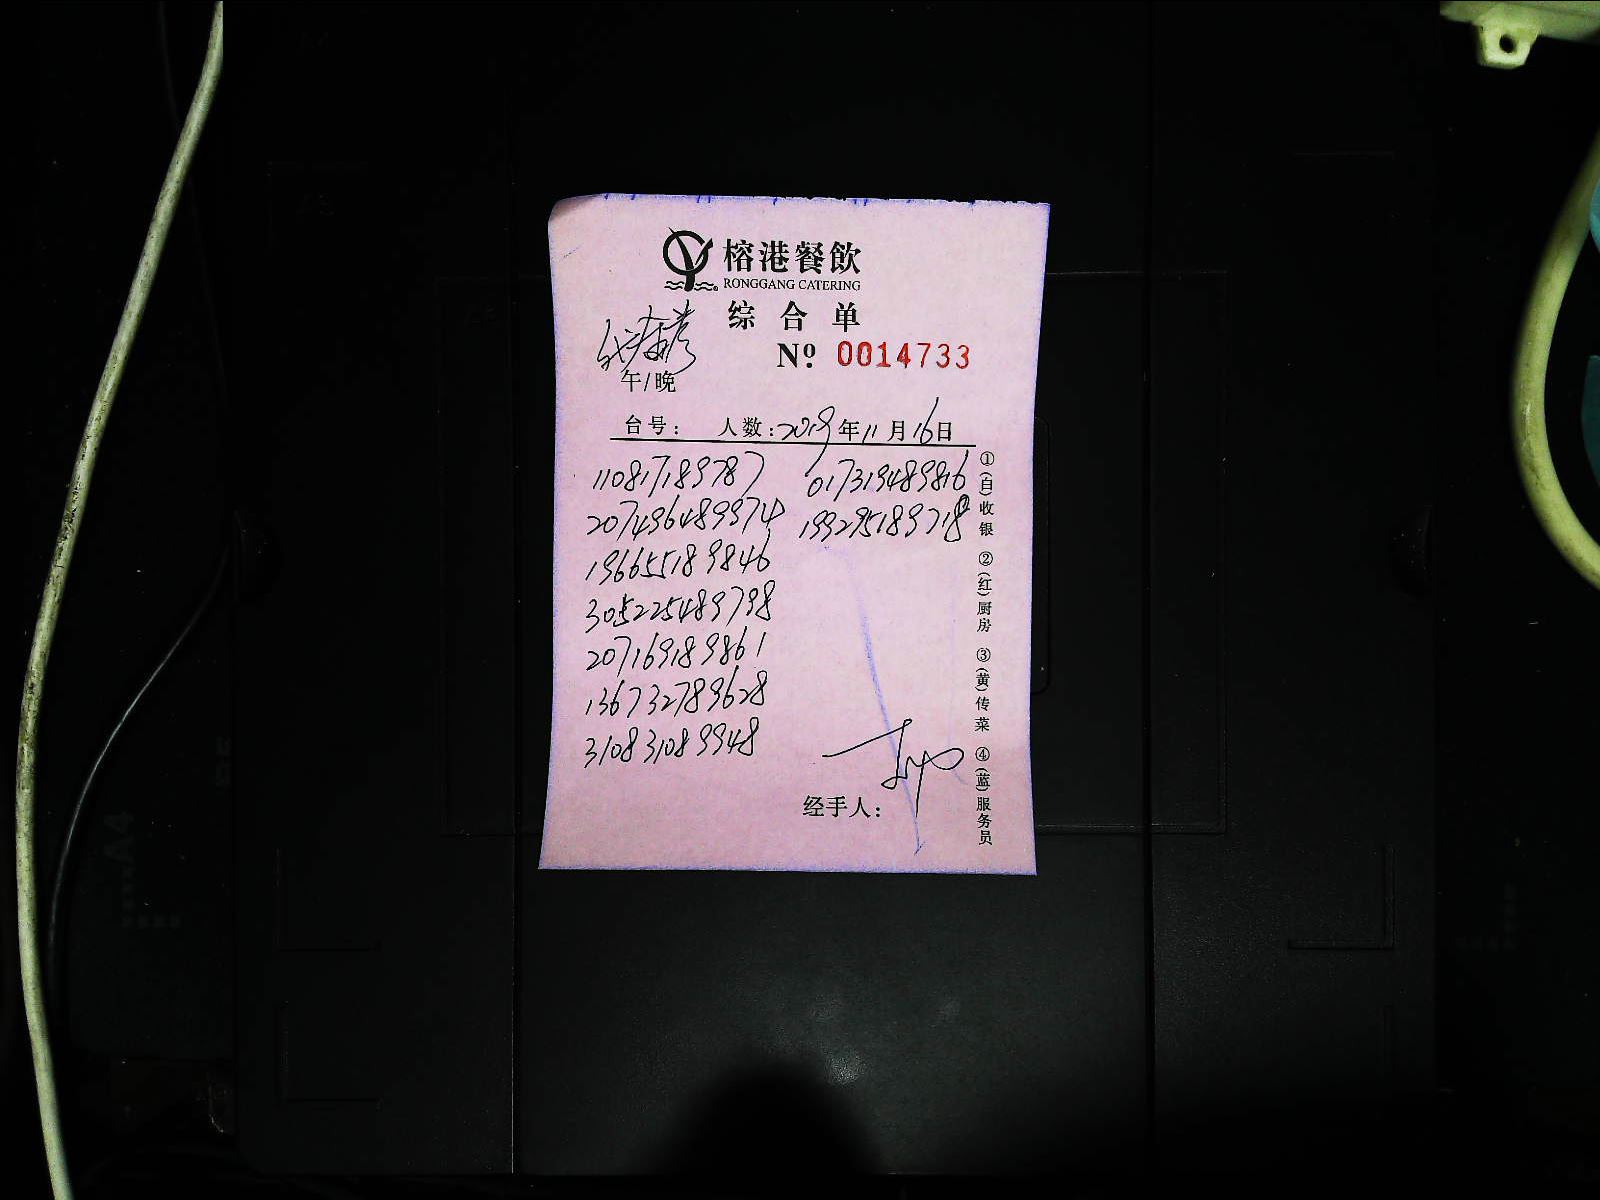 榕港餐飲
RONGGANG CATERING
综合单
Nº 0014733
午/晚
台号: 人数: 2019年11月16日
110817189787
207496489974
196655189846
305225489798
207169189861
136732789628
310831089948
017319489816
199295189718
①(白)收银 ②(红)厨房 ③(黄)传菜 ④(蓝)服务员
经手人: